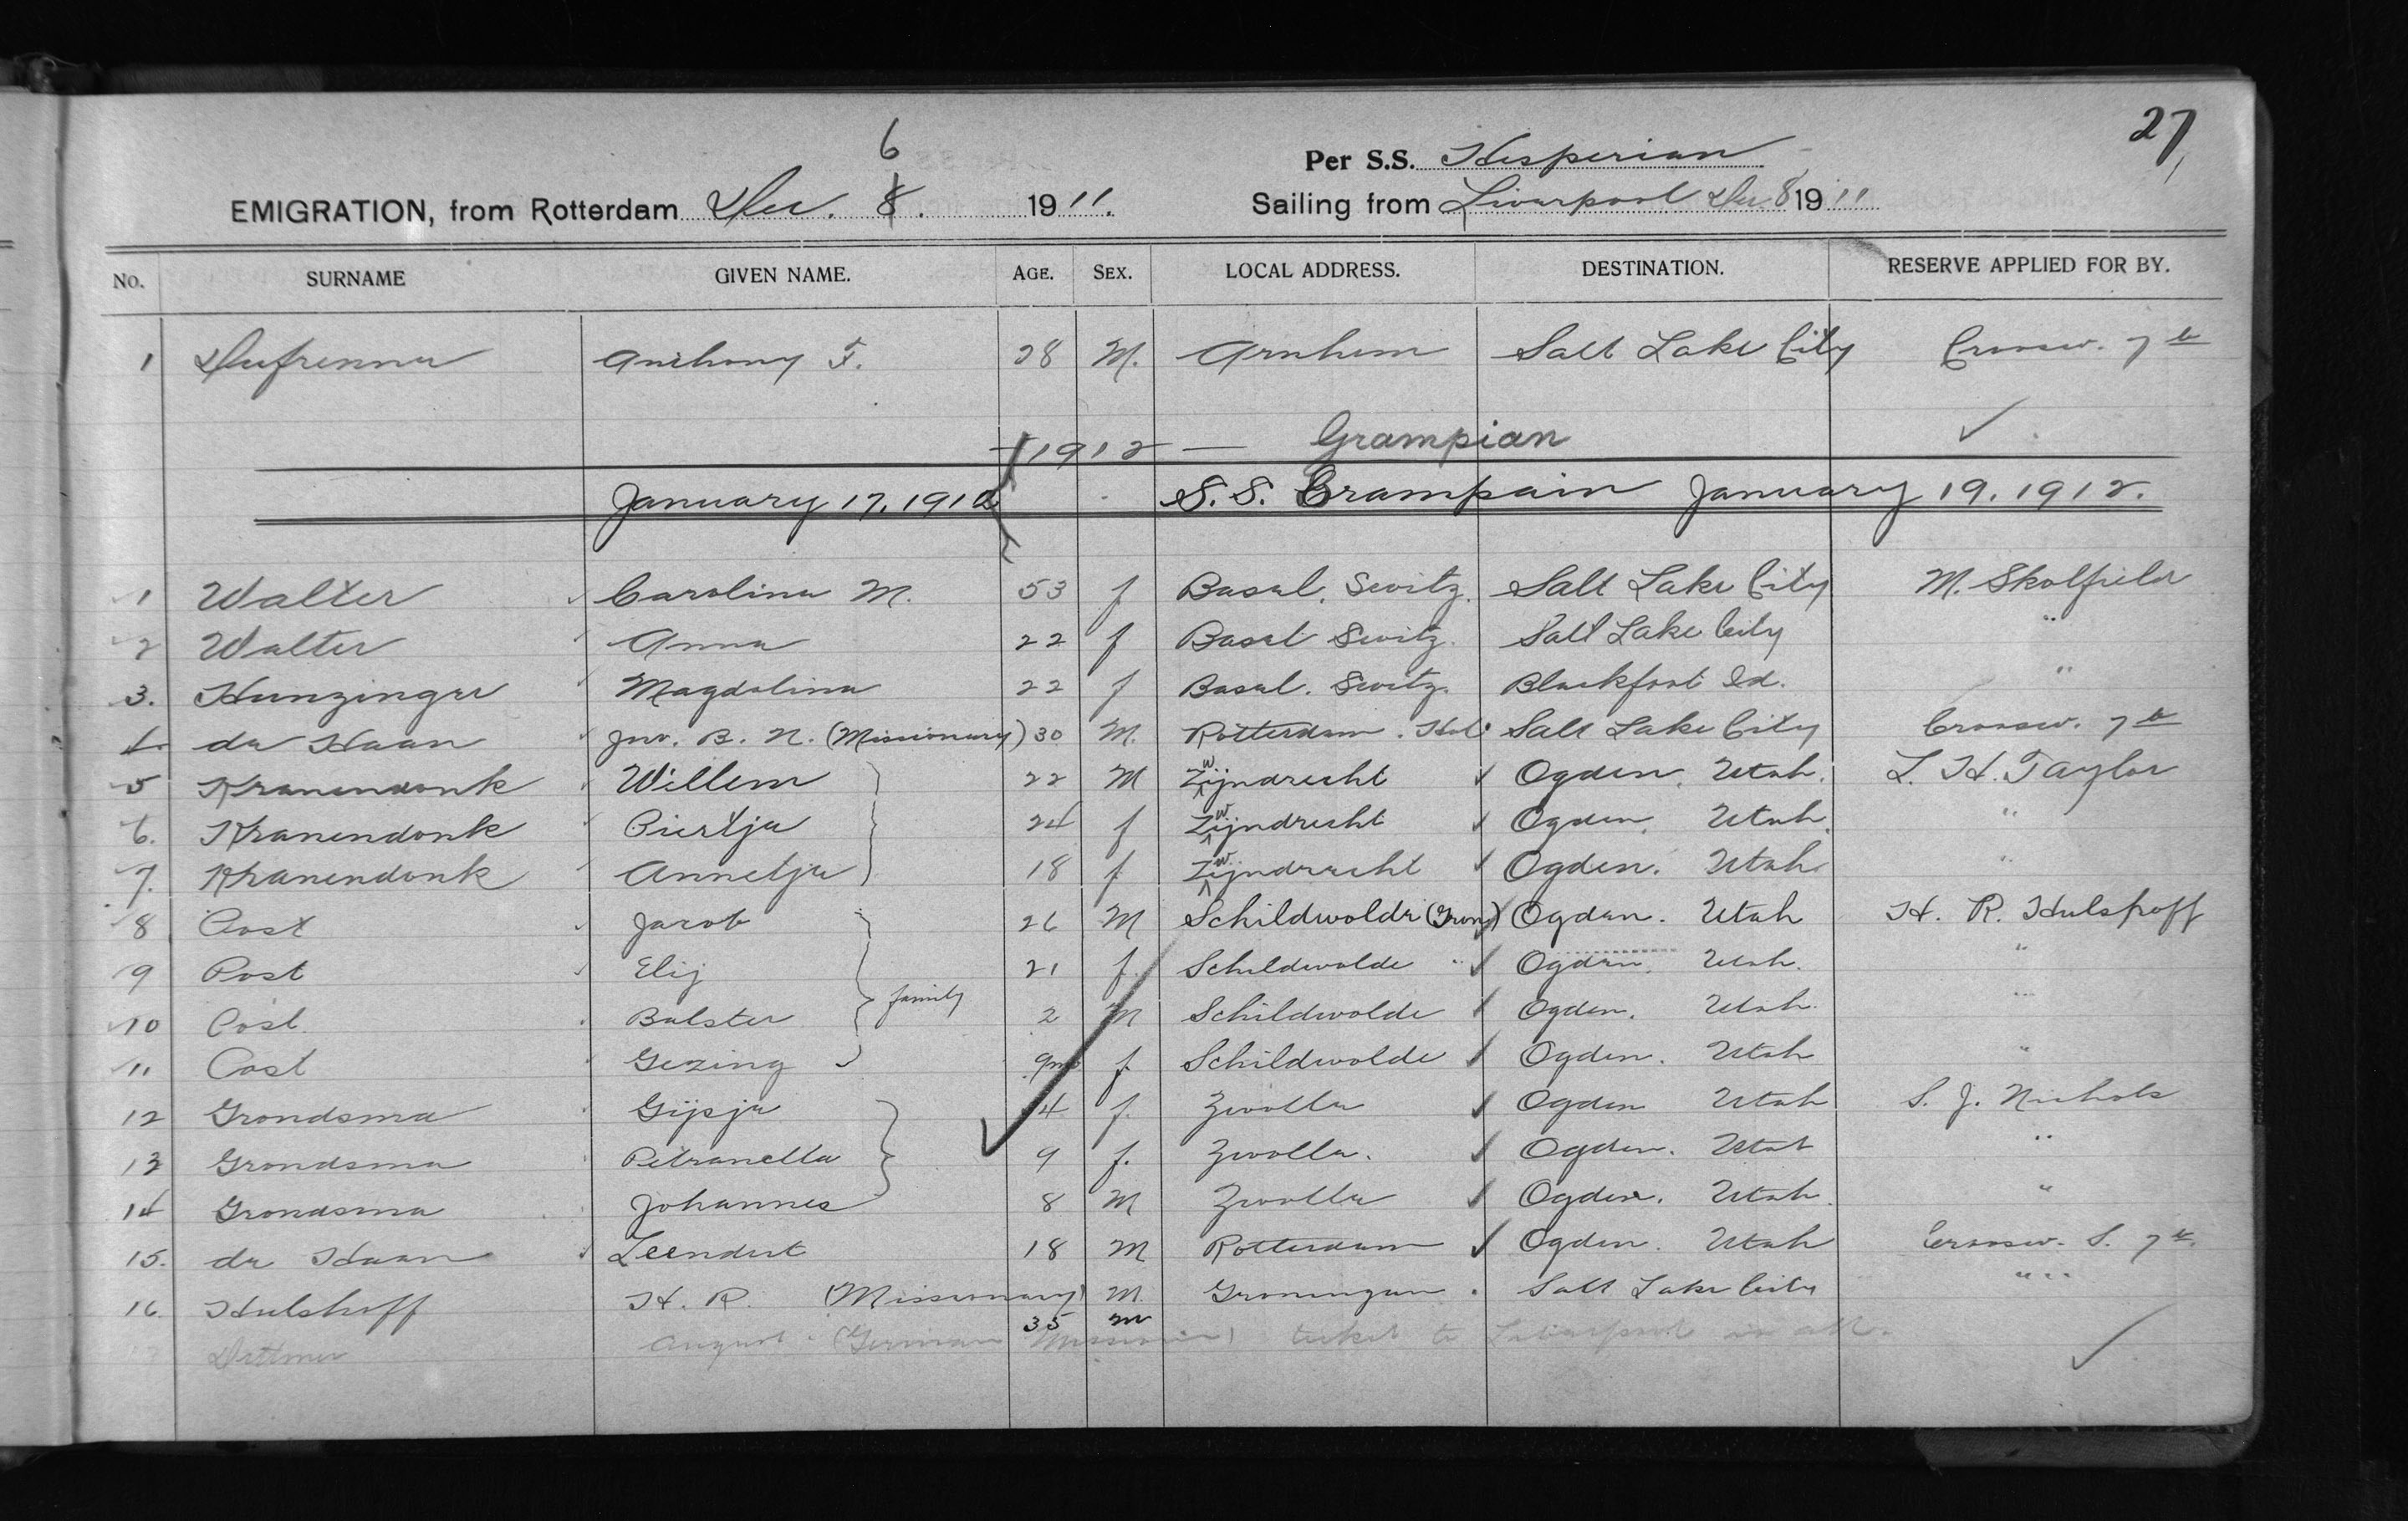 27
6
Per S.S. Hesperian
EMIGRATION, from Rotterdam Dec. 8. 1911. Sailing from Liverpool Dec. 8 1911
No. SURNAME GIVEN NAME. AGE. SEX. LOCAL ADDRESS. DESTINATION. RESERVE APPLIED FOR BY.
1 Dufrenne Anthony F. 28 M. Arnhem Salt Lake City Crossw. 7th
1912 — Grampian
January 17, 1912 S. S. Grampain January 19. 1912.
1 Walter Carolina M. 53 f Basel. Switz. Salt Lake City M. Skolfield
2 Walter Anna 22 f Basel Switz. Salt Lake City "
3. Hunzinger Magdalina 22 f Basel. Switz. Blackfoot Id. "
4. de Haan Jno. B. N. (Missionary) 30 M. Rotterdam. Hol. Salt Lake City Crossw. 7th
5 Kranendonk Willem 22 M Zwijndrecht Ogden, Utah. L. H. Taylor
6. Kranendonk Piertje 24 f Zwijndrecht Ogden, Utah. "
7. Kranendonk Annetje 18 f Zwijndrecht Ogden. Utah. "
8 Post Jacob 26 M Schildwolde (Gron) Ogden. Utah H. R. Hulshoff
9 Post Elij 21 f. Schildwolde " Ogden. Utah. "
10 Post. Balster family 2 M Schildwolde Ogden. Utah. "
11 Post Gezing 9m f. Schildwolde Ogden. Utah "
12 Grondsma Gijsje 4 f. Zwolle Ogden Utah S. J. Nichols
13 Grondsma Petronella 9 f. Zwolle. Ogden. Utah "
14 Grondsma Johannes 8 M Zwolle Ogden. Utah. "
15. de Haan Leendert 18 M Rotterdam Ogden. Utah Crossw. S. 7th.
16. Hulshoff H. R. (Missionary) M. Groningen. Salt Lake City " "
35 m
Dittmer August (German Mission) ticket to Liverpool